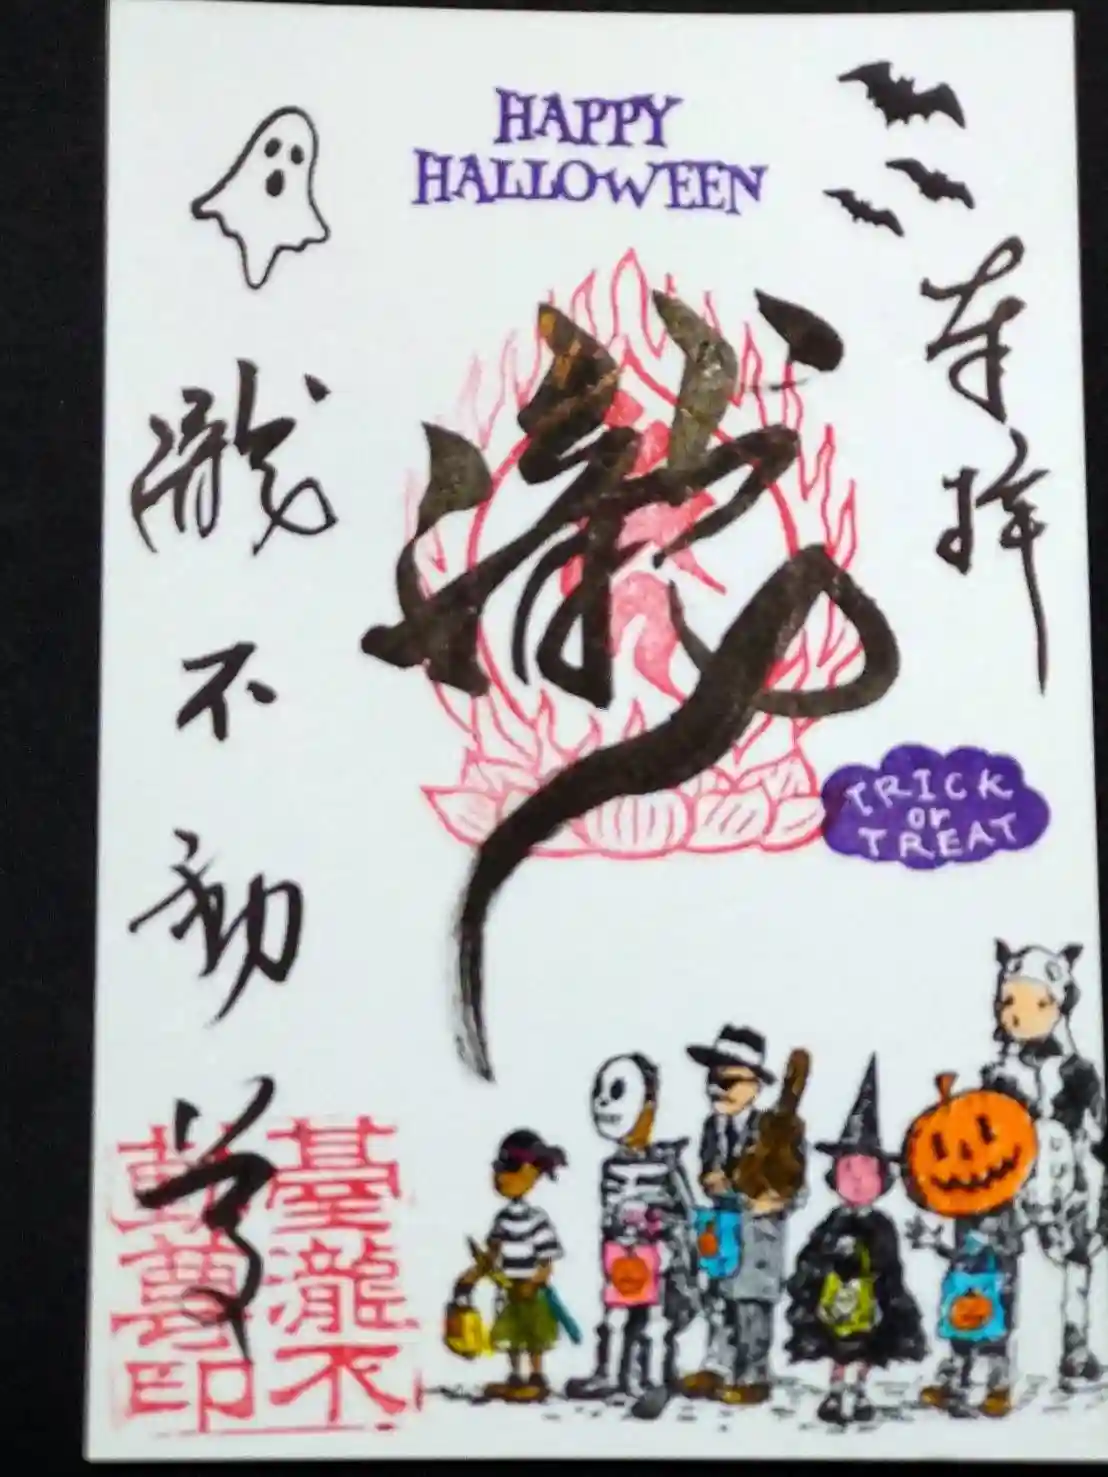 HAPPY
HALLOWEEN
奉拝
瀧
TRICK
or
TREAT
瀧不動尊
臺瀧不
動尊印